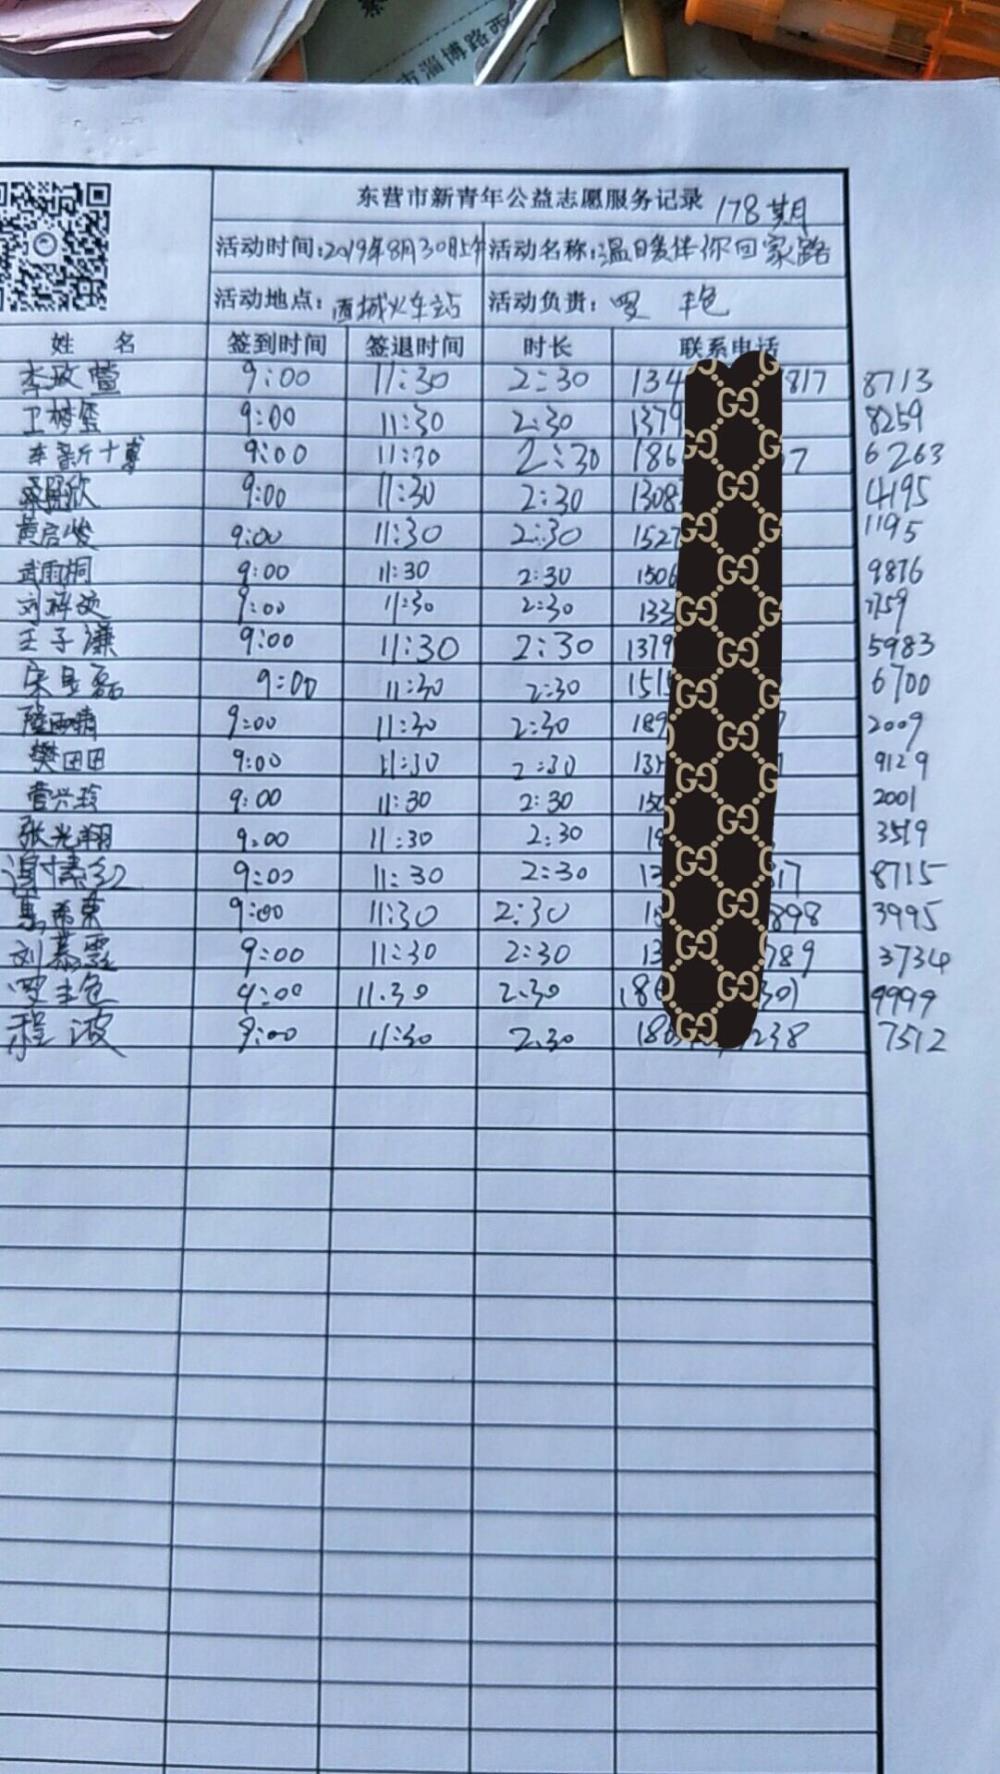 市淄博路西
东营市新青年公益志愿服务记录 178期
活动时间:2019年8月30日上午 活动名称:温暖伴你回家路
活动地点: 西城火车站 活动负责: 罗艳
姓 名 签到时间 签退时间 时长 联系电话
李政萱 9:00 11:30 2:30 134 817 8713
卫梦莹 9:00 11:30 2:30 1379 8259
9:00 11:30 2:30 186 7 6263
9:00 11:30 2:30 1308 4195
黄启峻 9:00 11:30 2:30 1527 1195
武雨桐 9:00 11:30 2:30 1506 9876
9:00 11:30 2:30 133 7759
王子濂 9:00 11:30 2:30 1379 5983
宋昱磊 9:00 11:30 2:30 1515 6700
9:00 11:30 2:30 189 2009
樊田田 9:00 11:30 2:30 9129
9:00 11:30 2:30 150 2001
张光翔 9:00 11:30 2:30 18 3519
9:00 11:30 2:30 13 17 8715
9:00 11:30 2:30 898 3995
刘慕霏 9:00 11:30 2:30 13 789 3734
罗艳 9:00 11.30 2.30 186 301 9999
程波 9:00 11:30 2.30 186 238 7512